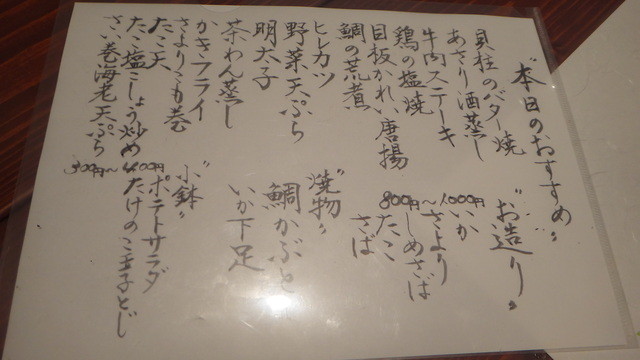 "本日のおすすめ"
貝柱のバター焼
あさり酒蒸し
牛肉ステーキ
鶏の塩焼
目板かれい唐揚
鯛の荒煮
ヒレカツ
野菜天ぷら
明太子
茶わん蒸し
かきフライ
さよりこも巻
たこ天
たこ塩こしょう炒め
さい巻海老天ぷら
"お造り"
800円〜1,000円
いか
さより
しめさば
たこ
さば
"焼物"
鯛かぶと
いか下足
"小鉢"
300円〜400円
ポテトサラダ
たけのこ玉子とじ